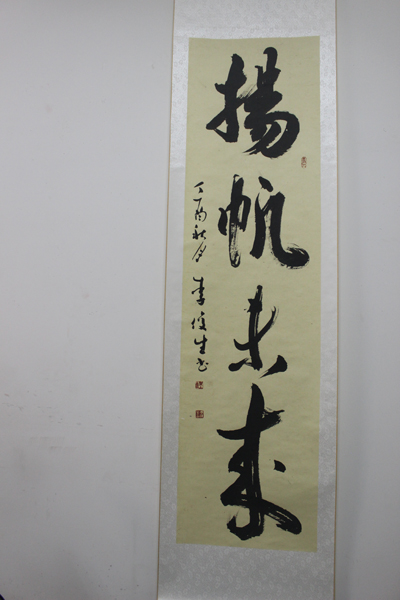 揚帆未来
丁酉秋月
李俊生书